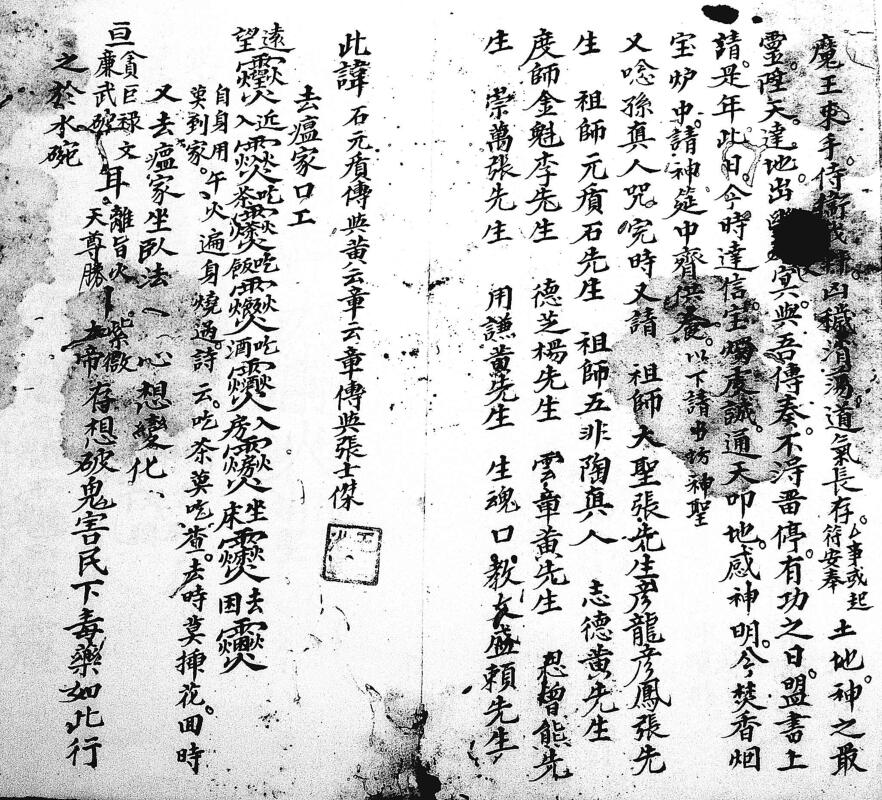 魔王束手侍衛我軒凶穢消蕩道氣長存 公事或起 符安奉 土地神之最
靈陞天達地出幽冥與吾傳奏不淂畱停有功之日盟書上
請是年此日今時達信宝燭虔誠通天叩地感神明今焚香烟
宝炉中請神筵中齊供養 以下請 神聖
又唸孫真人咒完時又請 祖師大聖張先生彦龍彦鳳張先
生 祖師元質石先生 祖師五非陶真人 志德黄先生
度師金魁李先生 德芝楊先生 雲章黄先生 恩增熊先
生 崇萬張先生 用謙黄先生 生魂口教 賴先生
此諱 石元質傳與黄云章云章傳與張士傑
去瘟家口工
遠望 近入 吃茶 吃飯 吃酒 入房 坐床 去回
自身用午火遍身燒過詩云吃茶莫吃查去時莫揷花回時
莫到家
又去瘟家坐臥法 心想變化
貪巨禄文廉武破 耳 離旨火 天尊勝 紫微 大帝 存想破鬼害民下毒藥如此行
之於水碗